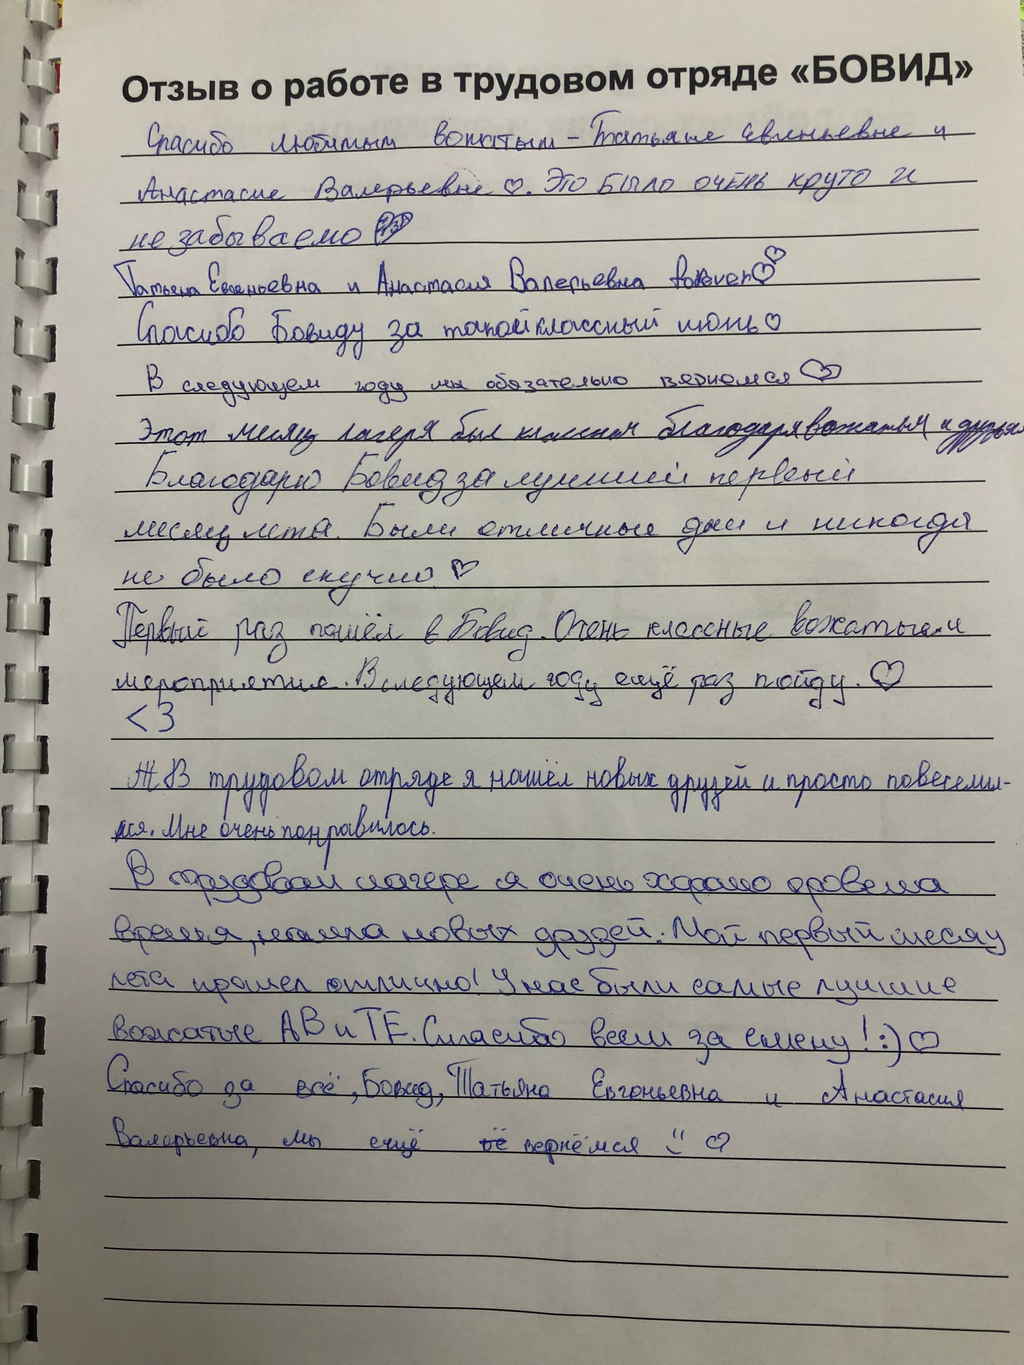 Отзыв о работе в трудовом отряде «БОВИД»
Спасибо любимым вожатым – Татьяне Евгеньевне и
Анастасие Валерьевне ♡. Это было очень круто и
не забываемо
Татьяна Евгеньевна и Анастасия Валерьевна forever♡♡
Спасибо Бовиду за такой классный июнь♡
В следующем году мы обязательно вернемся♡
Этот месяц лагеря был классным благодаря вожатым и друзьям
Благодарю Бовид за лучший первый
месяц лета. Были отличные дни и никогда
не было скучно ♡
Первый раз пошёл в Бовид. Очень классные вожатые и
мероприятия. В следующем году ещё раз пойду. ♡
<3
В трудовом отряде я нашёл новых друзей и просто повеселил-
ся. Мне очень понравилось.
В трудовом лагере я очень хорошо провела
время, нашла новых друзей. Мой первый месяц
лета прошел отлично! У нас были самые лучшие
вожатые АВ и ТЕ. Спасибо всем за смену! :) ♡
Спасибо за всё, Бовид, Татьяна Евгеньевна и Анастасия
Валерьевна, мы ещё вернёмся ♡